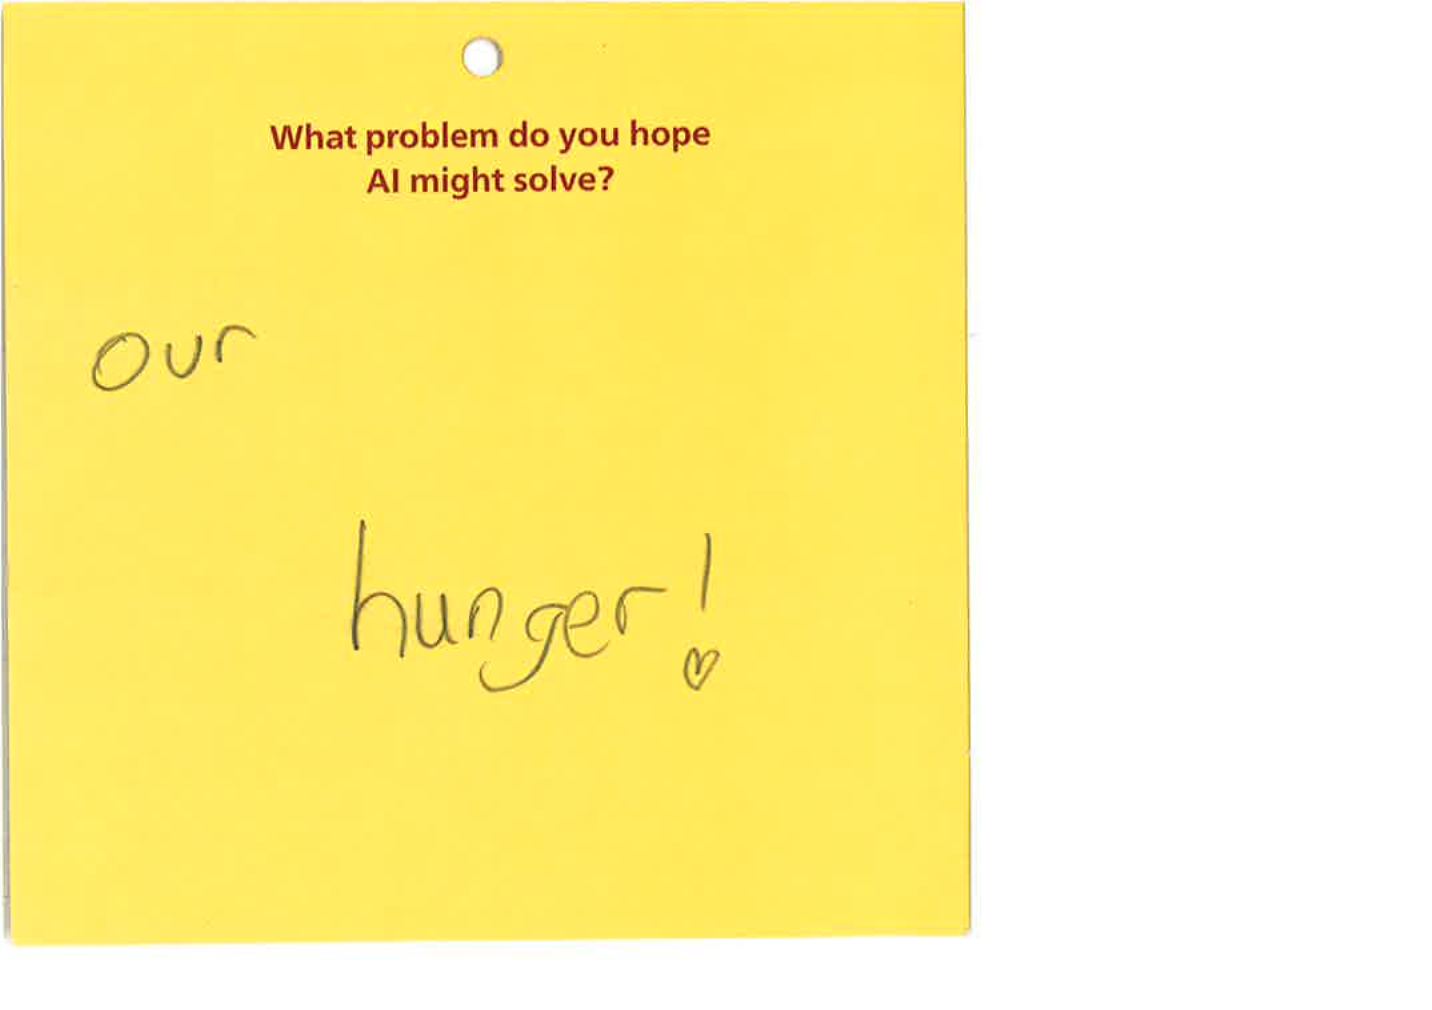 What problem do you hope
AI might solve?
our
hunger!